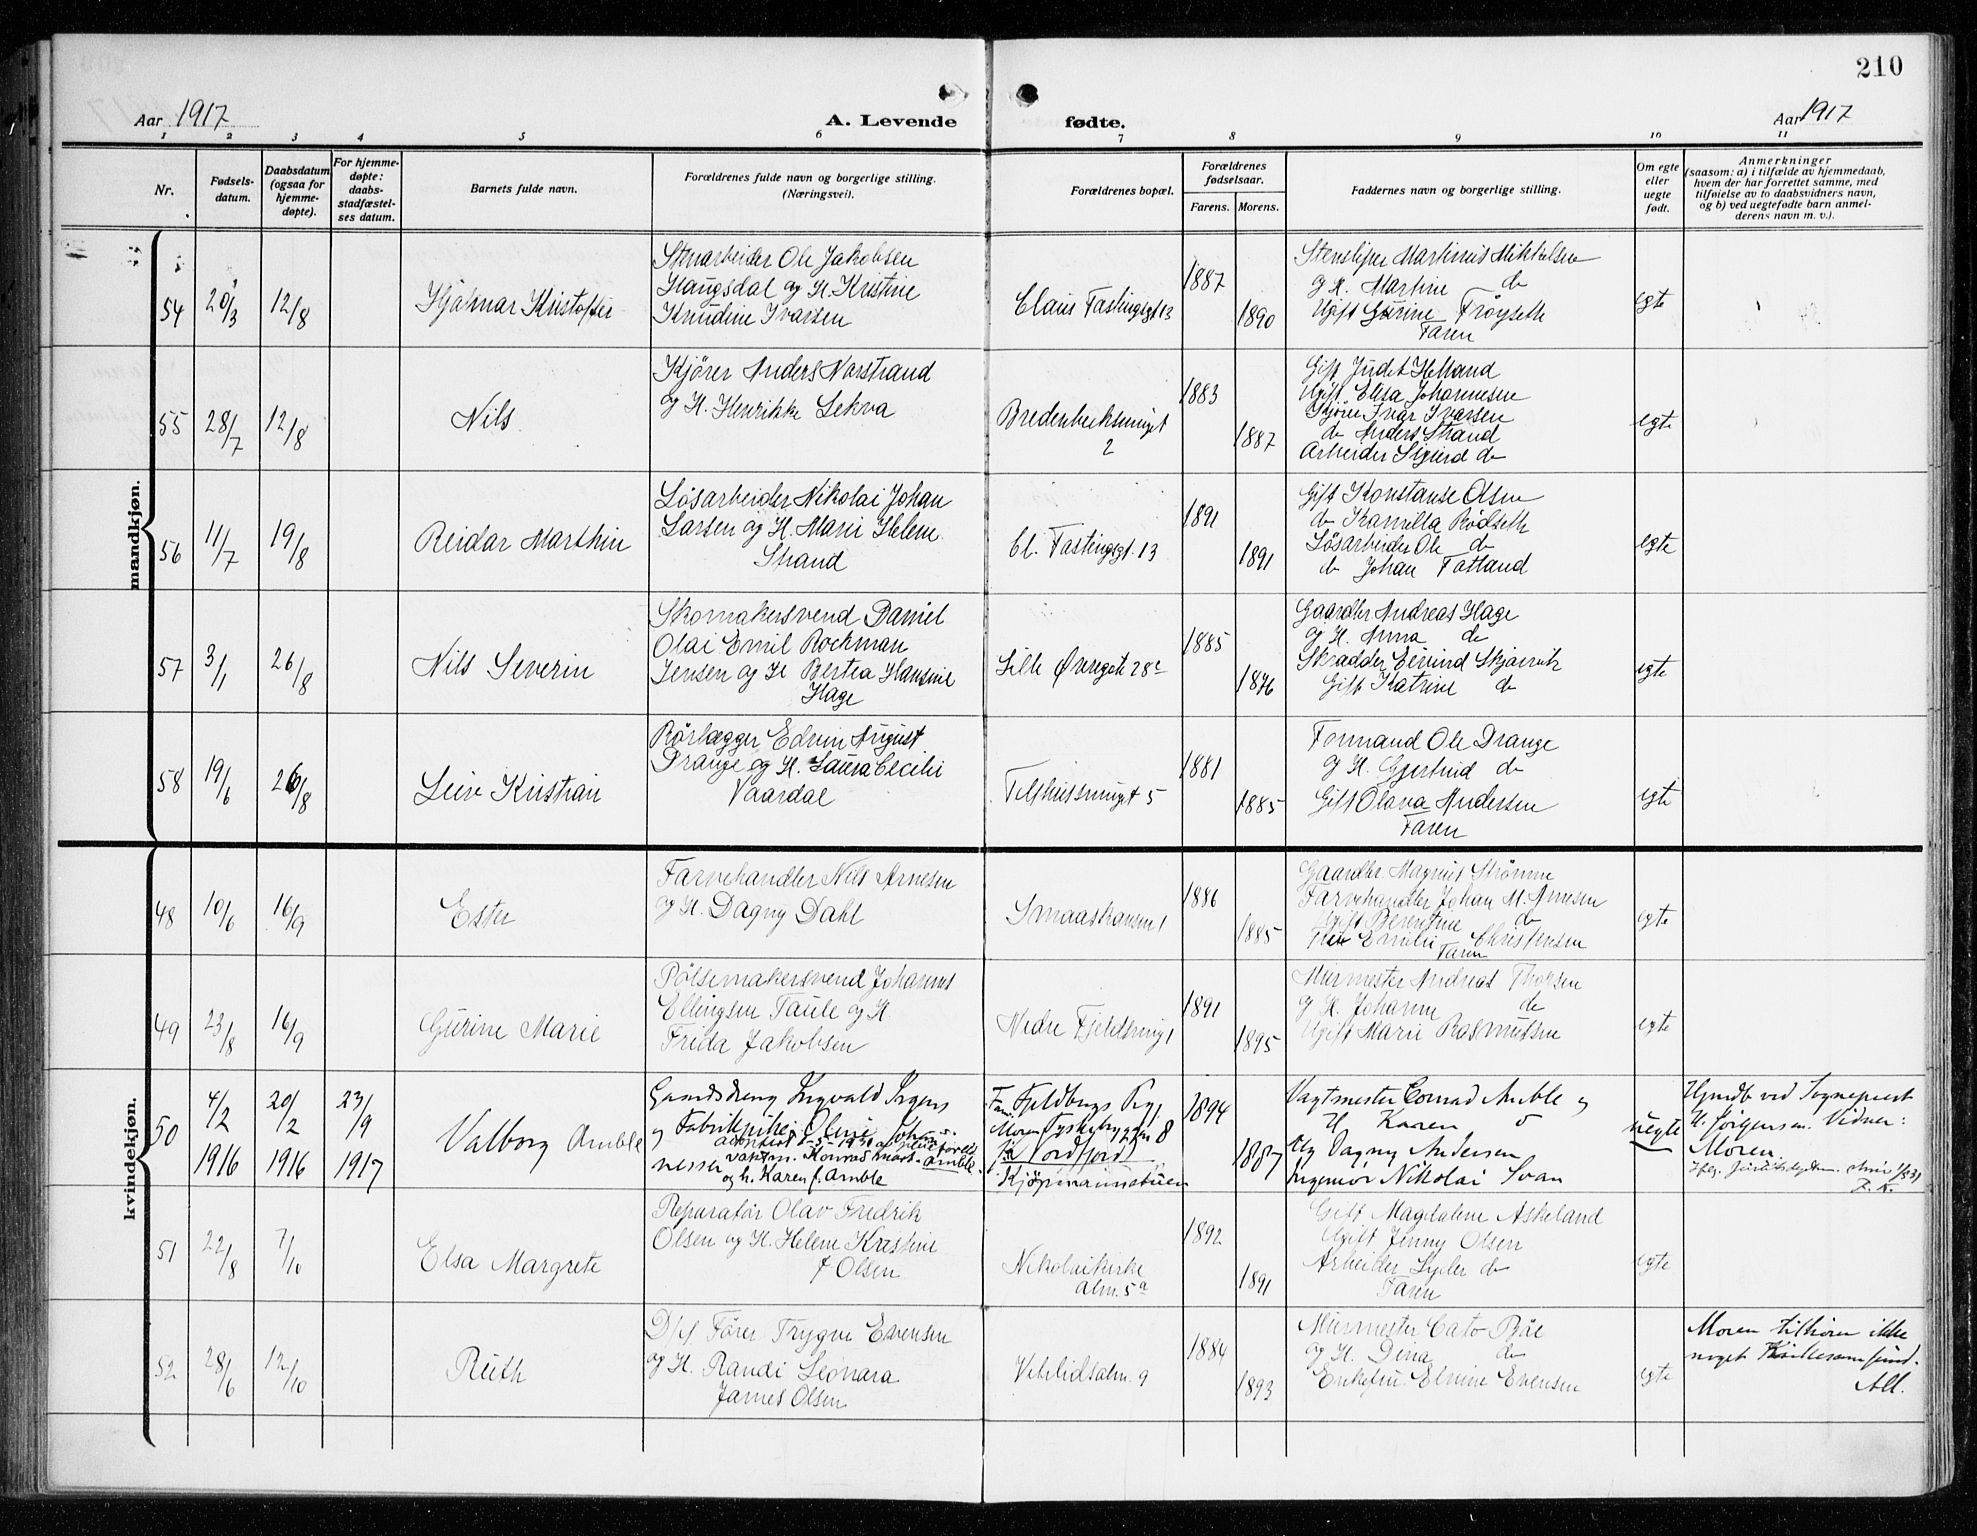 210
Aar 1917
A. Levende fødte.
Aar 1917
1 2 3 4 5 6 7 8 9 10 11
Nr.
Fødsels-
datum.
Daabsdatum
(ogsaa for
hjemme-
døpte).
For hjemme-
døpte:
daabs-
stadfæstel-
ses datum.
Barnets fulde navn.
Forældrenes fulde navn og borgerlige stilling.
(Næringsvei).
Forældrenes bopæl.
Forældrenes
fødselsaar.
Farens. Morens.
Faddernes navn og borgerlige stilling.
Om egte
eller
uegte
født.
Anmerkninger
(saasom: a) i tilfælde av hjemmedaab,
hvem der har forrettet samme, med
tilføielse av to daabsvidners navn,
og b) ved uegtefødte barn anmel-
derens navn m. v.).
mandkjøn.
54 20/3 12/8
Hjalmar Kristoffer
Stenarbeider Ole Jakobsen
Haugsdal og H. Kristine
Knudine Ivarsen
Claus Fastingsgt 13
1887
1890
Stensliper Martinus Mikkelsen
og H. Martine do
Ugift Gurine Frøyseth
Faren
egte
55 28/7 12/8
Nils
Kjører Anders Norstrand
og H. Henrikke Lekva
Bredenbecksmuget
2
1883
1887
Gift Judit Helland
Ugift Elisa Johannesen
Kjører Ivar Ivarsen
do Anders Strand
Arbeider Sigurd do
egte
56 11/7 19/8
Reidar Marthin
Løsarbeider Nikolai Johan
Larsen og H. Marie Helene
Strand
Cl. Fastingsgt. 13
1891
1891
Gift Konstanse Olsen
do Kamilla Rødseth
Løsarbeider Ole do
do Johan Tatland
egte
57 3/1 26/8
Nils Severin
Skomakersvend Daniel
Olai Emil Rockman
Jensen og H Bertea Hansine
Hage
Lille Øvregate 28c
1885
1876
Gaardbr Andreas Hage
og H. Anna do
Skrædder Eivind
Gift Katrine do
egte
58 19/6 26/8
Leiv Kristian
Rørlægger Edvin August
Drange og H. Laura Cecilie
Vaardal
5
1881
1885
Formand Ole Drange
og H. Gjertrud do
Gift Olava Andersen
Faren
egte
kvindekjøn.
48 10/6 16/9
Ester
Farvehandler Nils Arnesen
og H. Dagny Dahl
Smaastransm 1
1886
1885
Gaardbr Magnus Strømme
Farvehandler Johan M. Arnesen
Ugift Berentine do
Emilie Christensen
Faren
egte
49 23/8 16/9
Gurine Marie
Pølsemakersvend Johannes
Ellingsen Taule og H
Frida Jakobsen
Nedre Fjeldsmug 1
1891
1895
Murmester Andreas Thorsen
og H. Johanne do
Ugift Marie Rasmussen
egte
50 4/2 1916 20/2 1916 23/9 1917
Valborg Amble
Gaardsdreng Ingvald
og Fabrikpike Oline Johan-
nessen
vaktm. Konrad Mart. Amble
og h. Karen f. Amble
Moren Tyskebryggen 8
Nordfjord
Kjøpmannstuen
1894
1887
Vagtmester Conrad Amble og
H Karen
Ug Dagny Andersen
Ingeniør Nikolai Svan
uegte
Hjmdb ved Sogneprest
H. Jørgensen. Vidner:
Moren
51 22/8 7/10
Elsa Margrete
Reparatør Olav Fredrik
Olsen og H. Helene Kristine
f Olsen
Nikolaikirke
alm. 5a
1892
1891
Gift Magdalene Askeland
Ugift Jenny Olsen
Arbeider do
Faren
egte
52 28/6 12/10
Ruth
D/s Fører Trygve Evensen
og H. Randi Leonara
James Olsen
Vetrlidsalm. 9
1884
1893
Murmester Cato Bøe
og H. Dina do
Enkefru Elvine Evensen
egte
Moren tilhører ikke
noget Kirkesamfund.